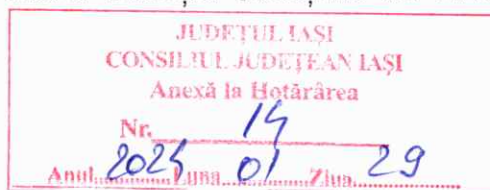 JUDEȚUL IAȘI
CONSILIUL JUDEȚEAN IAȘI
Anexă la Hotărârea
Nr. 14
Anul 2025 Luna 01 Ziua 29